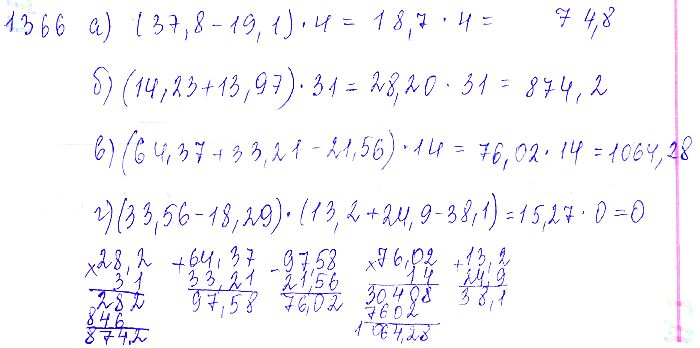 1366 а) (37,8-19,1)·4 = 18,7·4 = 74,8
б) (14,23+13,97)·31 = 28,20·31 = 874,2
в) (64,37+33,21-21,56)·14 = 76,02·14 = 1064,28
г) (33,56-18,29)·(13,2+24,9-38,1) = 15,27·0 = 0
×28,2 +64,37 -97,58 ×76,02 +13,2
31 33,21 21,56 14 24,9
282 97,58 76,02 30408 38,1
846 7602
874,2 1064,28